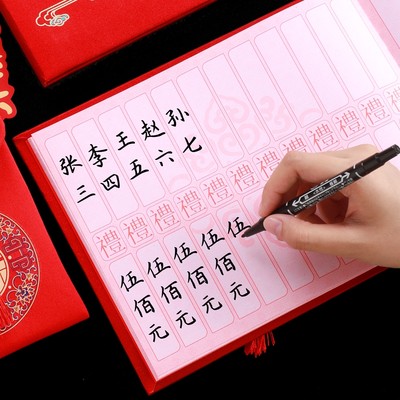 张三
李四
王五
赵六
孙七
禮 禮 禮 禮 禮 禮 禮 禮 禮 禮 禮
伍佰元
伍佰元
伍佰元
伍佰元
伍